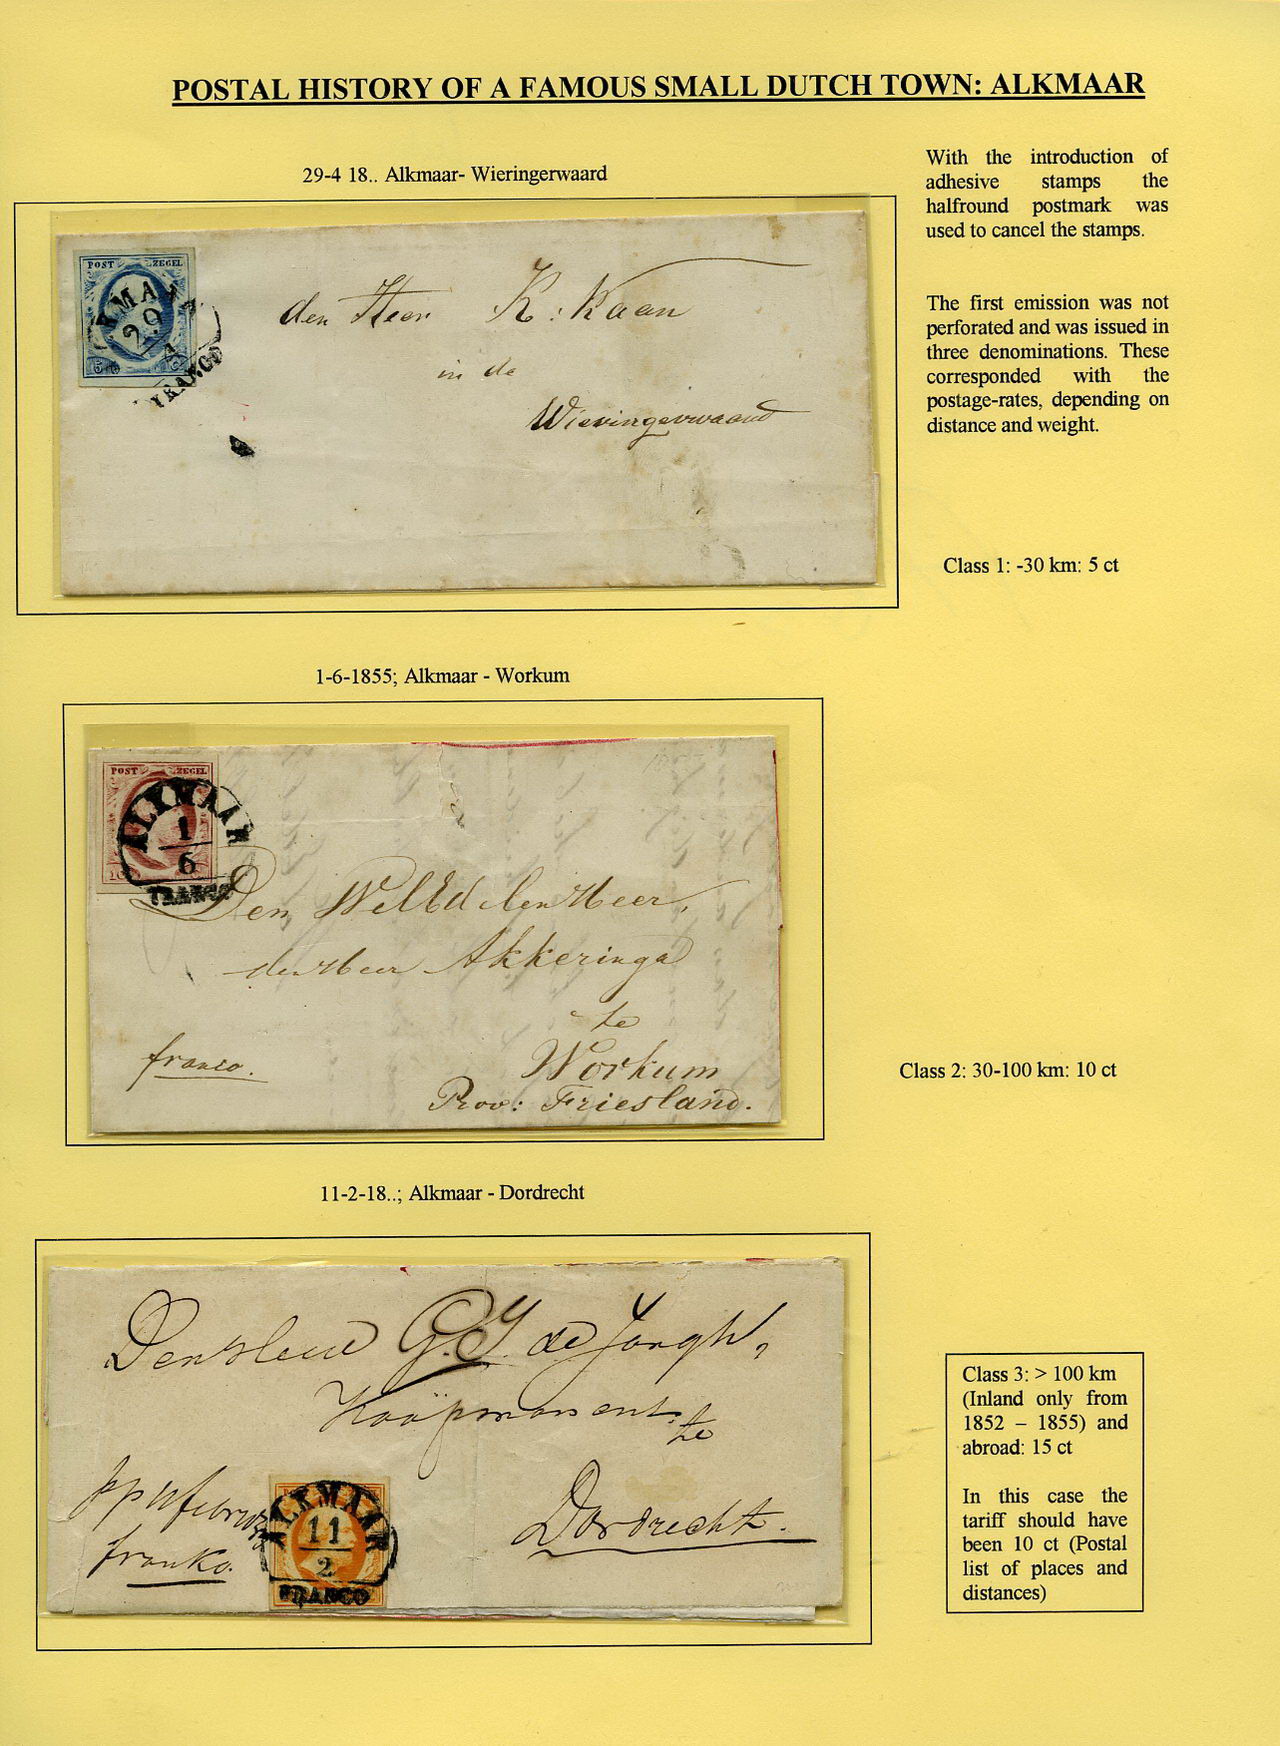 POSTAL HISTORY OF A FAMOUS SMALL DUTCH TOWN: ALKMAAR
29-4 18.. Alkmaar- Wieringerwaard
With the introduction of
adhesive stamps the
halfround postmark was
used to cancel the stamps.
The first emission was not
perforated and was issued in
three denominations. These
corresponded with the
postage-rates, depending on
distance and weight.
POST ZEGEL
29
4
FRANCO
den Heer K: Kaan
in de
Wieringerwaard
Class 1: -30 km: 5 ct
1-6-1855; Alkmaar - Workum
POST ZEGEL
ALKMAAR
1
6
FRANCO
Den WelEd
Akkeringa
te
Workum
Prov: Friesland.
franco.
Class 2: 30-100 km: 10 ct
11-2-18..; Alkmaar - Dordrecht
de Jongh,
te
Dordrecht.
franko.
ALKMAAR
11
2
FRANCO
Class 3: > 100 km
(Inland only from
1852 – 1855) and
abroad: 15 ct
In this case the
tariff should have
been 10 ct (Postal
list of places and
distances)